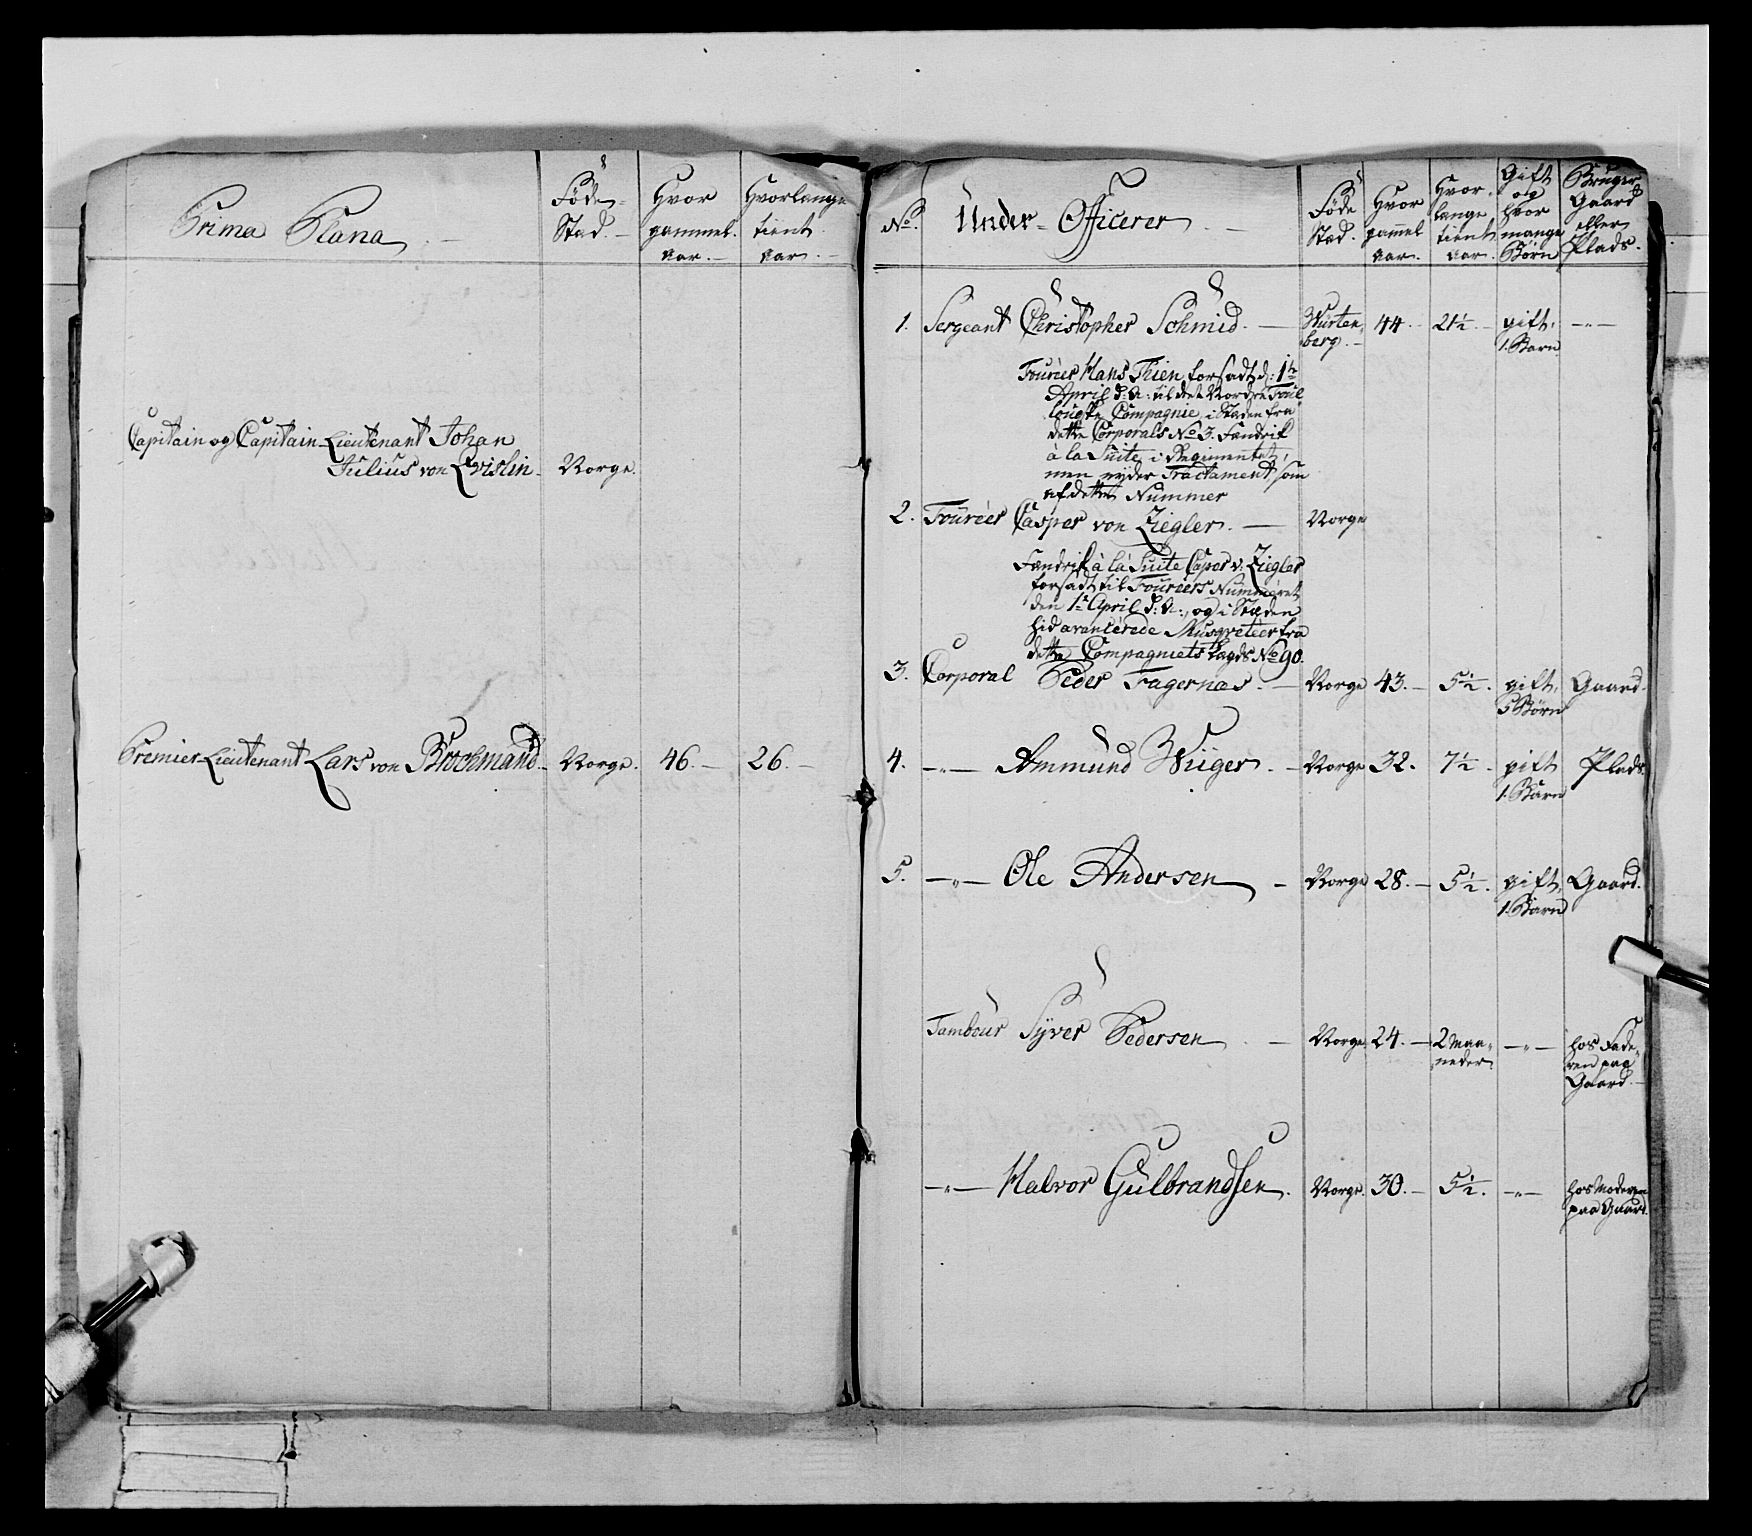 Prima Plana
Føde
Stad.
Hvor
gammel.
aar.
Hvorlænge
tient
aar.
Capitain og Capitain-Lieutenant Johan
Julius von Norge.
Premier-Lieutenant Lars von Brochmand. Norge. 46. 26.
No. Under-Officerer
Føde
Stæd.
Hvor
gammel
aar.
Hvor
længe
tient
aar.
Gift
og
hvor
mange
Børn
Bruger
Gaard
eller
Plads.
1. Sergeant Christopher Schmid. Würten- 44. 21½ gift, —„—
berg. 1. Barn
Fourèer Hans Thien forsadt d: 1te
April d: A: til det Nordre
Compagnie, i Stæden fra
dette Corporals No 3. Fændrik
à la Suite i Regimentet,
men nyder Tractament som
af dette Nummer
2. Fourèer Casper von Ziegler. Norge
Fændrik à la Suite Casper v. Ziegler
forsadt til Foureers Nummeret
den 1te April d: A:, og i Stæden
hid avancerede Musqveteer fra
dette Compagniets Lægds No 90.
3. Corporal Peder Fagernæs. Norge 43. 5½. gift, Gaard.
5 Børn
4. —„— Ammund Wiiger. Norge 32. 7½. gift Plads.
1. Barn
5. —„— Ole Andersen Norge 28. 5½. gift, Gaard.
1. Barn
Tambour Syver Pedersen Norge. 24. 2 Maa- —„— hos Fade-
neder. ren paa
Gaard.
—„— Halvor Gulbrandsen. Norge. 30. 5½. —„— hos Moderen
paa Gaard.